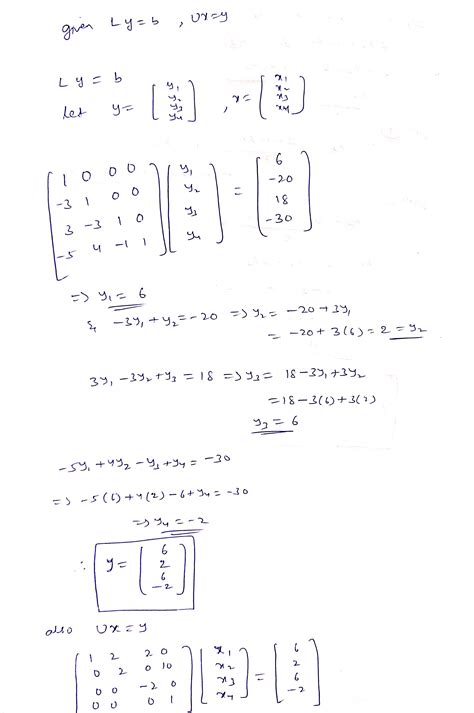 given Ly=b , Ux=y
Ly = b
let y= [y1 y2 y3 y4] , x= [x1 x2 x3 x4]
[1 0 0 0 [y1 [6
-3 1 0 0 y2 = -20
3 -3 1 0 y3 18
-5 4 -1 1] y4] -30]
=> y1 = 6
& -3y1+y2=-20 => y2= -20+3y1
= -20+3(6)=2=y2
3y1-3y2+y3=18 => y3= 18-3y1+3y2
=18-3(6)+3(2)
y3=6
-5y1+4y2-y3+y4=-30
=> -5(6)+4(2)-6+y4=-30
=> y4=-2
∴ y= [6 2 6 -2]
also Ux=y
[1 2 2 0 [x1 [6
0 2 0 10 x2 = 2
0 0 -2 0 x3 6
0 0 0 1] x4] -2]